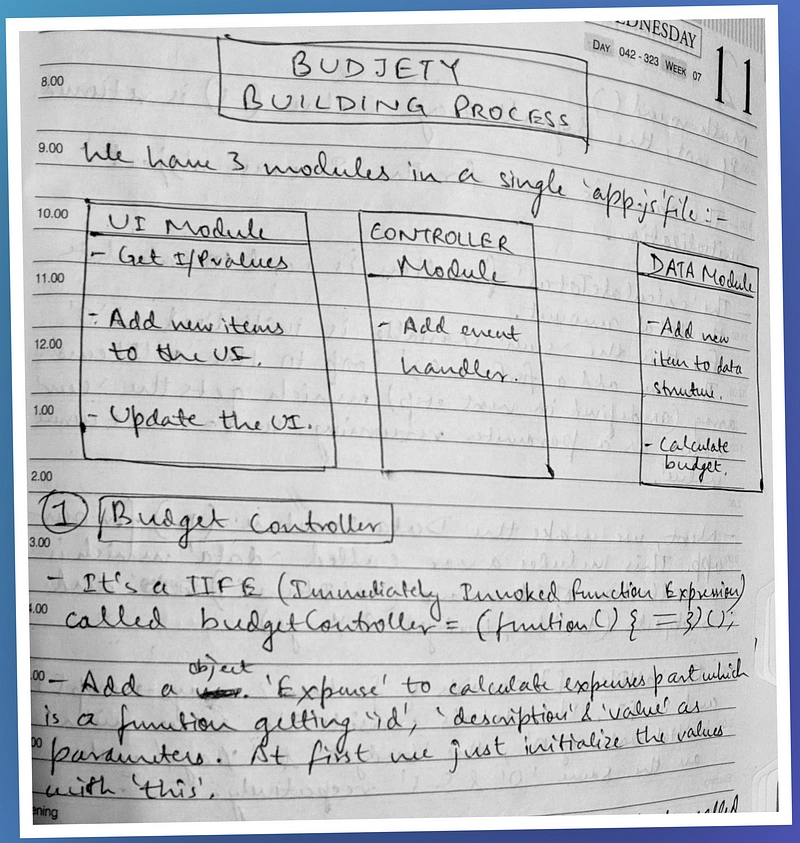 WEDNESDAY
DAY 042-323 WEEK 07
11
BUDJETY
BUILDING PROCESS
8.00
9.00 We have 3 modules in a single 'app.js' file :-
10.00
UI Module
- Get I/P values
- Add new items
to the UI.
- Update the UI.
CONTROLLER
Module
- Add event
handler.
DATA Module
- Add new
item to data
struture.
- Calculate
budget.
11.00
12.00
1.00
2.00
① Budget Controller
3.00
- It's a IIFE (Immediately Invoked Function Expression)
4.00 called budgetController = (funtion() { = })();
object
.00 - Add a 'Expense' to calculate expenses part which
is a funtion getting 'id', 'description' & 'value' as
00 parameters. At first we just initialize the values
with 'this'.
ening